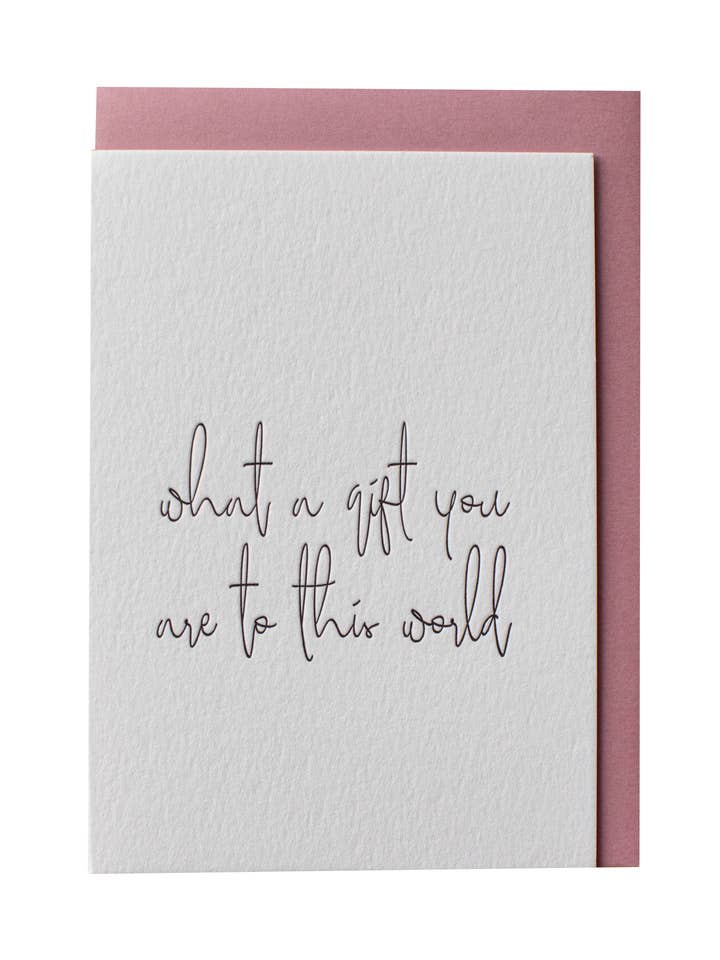 what a gift you
are to this world